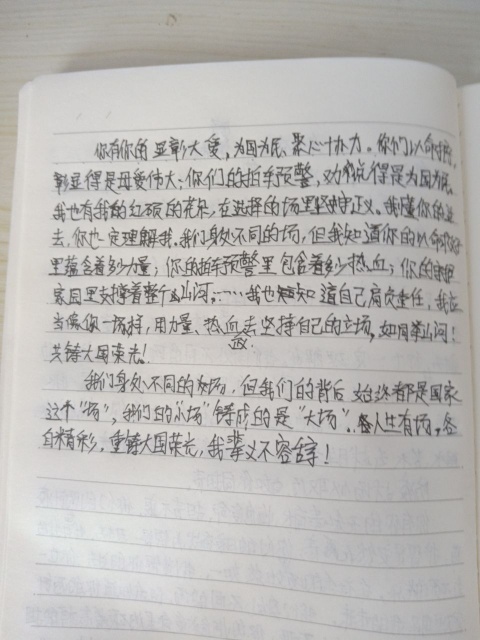 你有你的显彰大爱，为国为民、聚心协力。你们以命守护，
彰显得是母爱伟大；你们的拍车预警，劝说得是为国为民。
我也有我的红硕的花朵，在选择的场里坚守正义。我懂你的过
去，你也一定理解我。我们身处不同的场，但我知道你的以命守护
里蕴含着多少力量；你的拍车预警里包含着多少热血；你的
家园里支撑着整个山河，……我也知道自己肩负责任，我应
当像你一样，用力量、热血去坚持自己的立场，如同举山河！
共铸大国荣光！
我们身处不同的场，但我们的背后始终都是国家
这个“场”，我们的“小场”铸成的是“大场”。人生有场，各
自精彩，重铸大国荣光，我辈义不容辞！